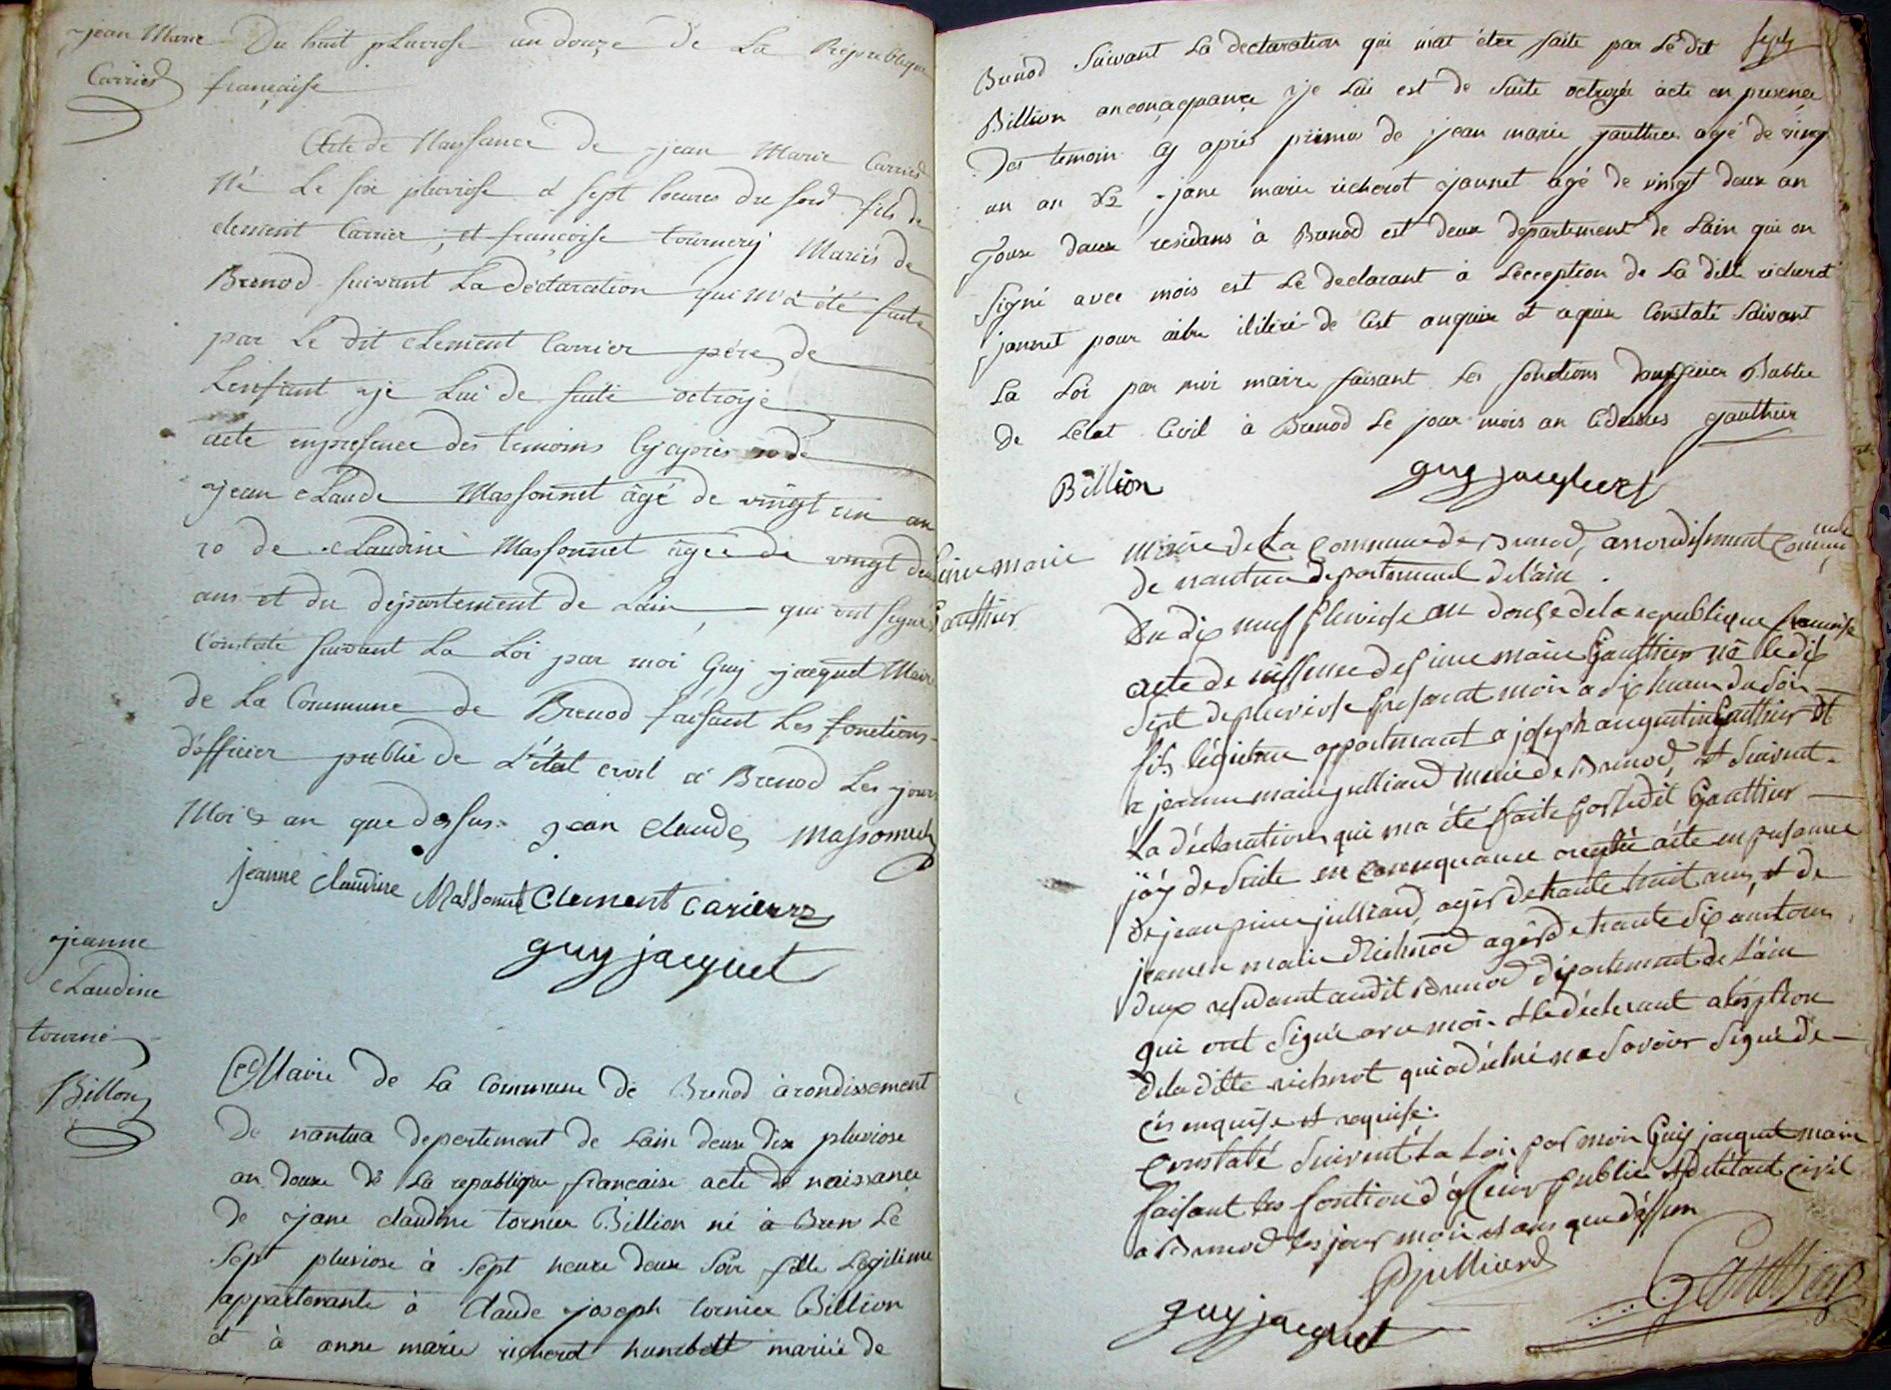 jean Marie Carrier
Du huit pluviose an douze de La Republique
française
Acte de Naissance de jean Marie Carrier
Né Le six pluviose à sept heures du soir fils de
clement Carrier, et françoise tournery Mariés de
Brenod suivant La déclaration qui m'a été faite
par Le dit clement Carrier père de
Lenfant je Lui de suite octroyé
acte enpresence des temoins cyaprès
jean claude Massonnet âgé de vingt un an
de claudine Massonnet âgée de vingt deux
ans et du departement de Lain qui ont signés
Constaté suivant La Loi par moi Guy jacquet Maire
de La Commune de Brenod faisant Les fonctions
d'officier public de L'état civil à Brenod Les jours
Mois an que dessus jean claude Massonnet
jeanne claudine Massonnet Clement carierz
guy jacquet
jeanne
claudine
tournié
Billon
Mairie de La commune de Brenod arondissement
de nantua departement de Lain deux dix pluviose
an douze de La republique francaise acte de naissance
de jane claudine tornier Billion né à Bren Le
sept pluviose à sept heure deux soir fille Legitime
appartenante à Claude joseph tornier Billion
et à anne marie richerot humbett mariée de
Brenod suivant La declaration qui mat étér faite par Le dit
Billion anconaquance je Lui est de suite octroyée acte en presence
Des temoin cy après primo de jean marie gauthier agé de ving
un an 2 jane marie richerot jaunet agé de vingt deux an
Tous daux residans à Brenod est deux departement de Lain qui on
signé avec mois est Le declarant à Lecception de La dite richerot
jannet pour aitre iliteré de cest anquix et aquix Constaté suivant
La Loi par moi maire faisant Les fonctions dauficier Publie
de Letat Civil à Brenod Le jour mois an Cidessus gauthier
Billion
guy jacquet
marie
Gauthier
Mairie de La Commune de Brenod, arrondissement
de nantua departement de l'ain.
Du dix neuf pluviose an douze de la republique francaise
acte de naissance de marie Gauthier né le dix
sept de pluviose presant mois a six heures du soir
fils légitime appartenant a joseph augustin Gauthier et
a jeanne marie julliard marié de Brenod, et suivant
La déclaration qui ma été faite par ledit Gauthier
jäy de suite en consequance acte en presance
de jean julliard, agés de trante huit ans, et de
marie Richerod agés de trante six ans tous
deux residant audit Brenod département de L'ain
qui ont signé avec moi et le déclarant a lexseption
de la ditte richerot qui a declaré ne savoir signé de
ce enquise et requise.
Constaté suivent La Loi par moi Guy jacquet maire
faisant les fontion d'officier public de l'état civil
a Brenod les jour mois et ans que dessus
julliard
guy jacquet
Gauthier